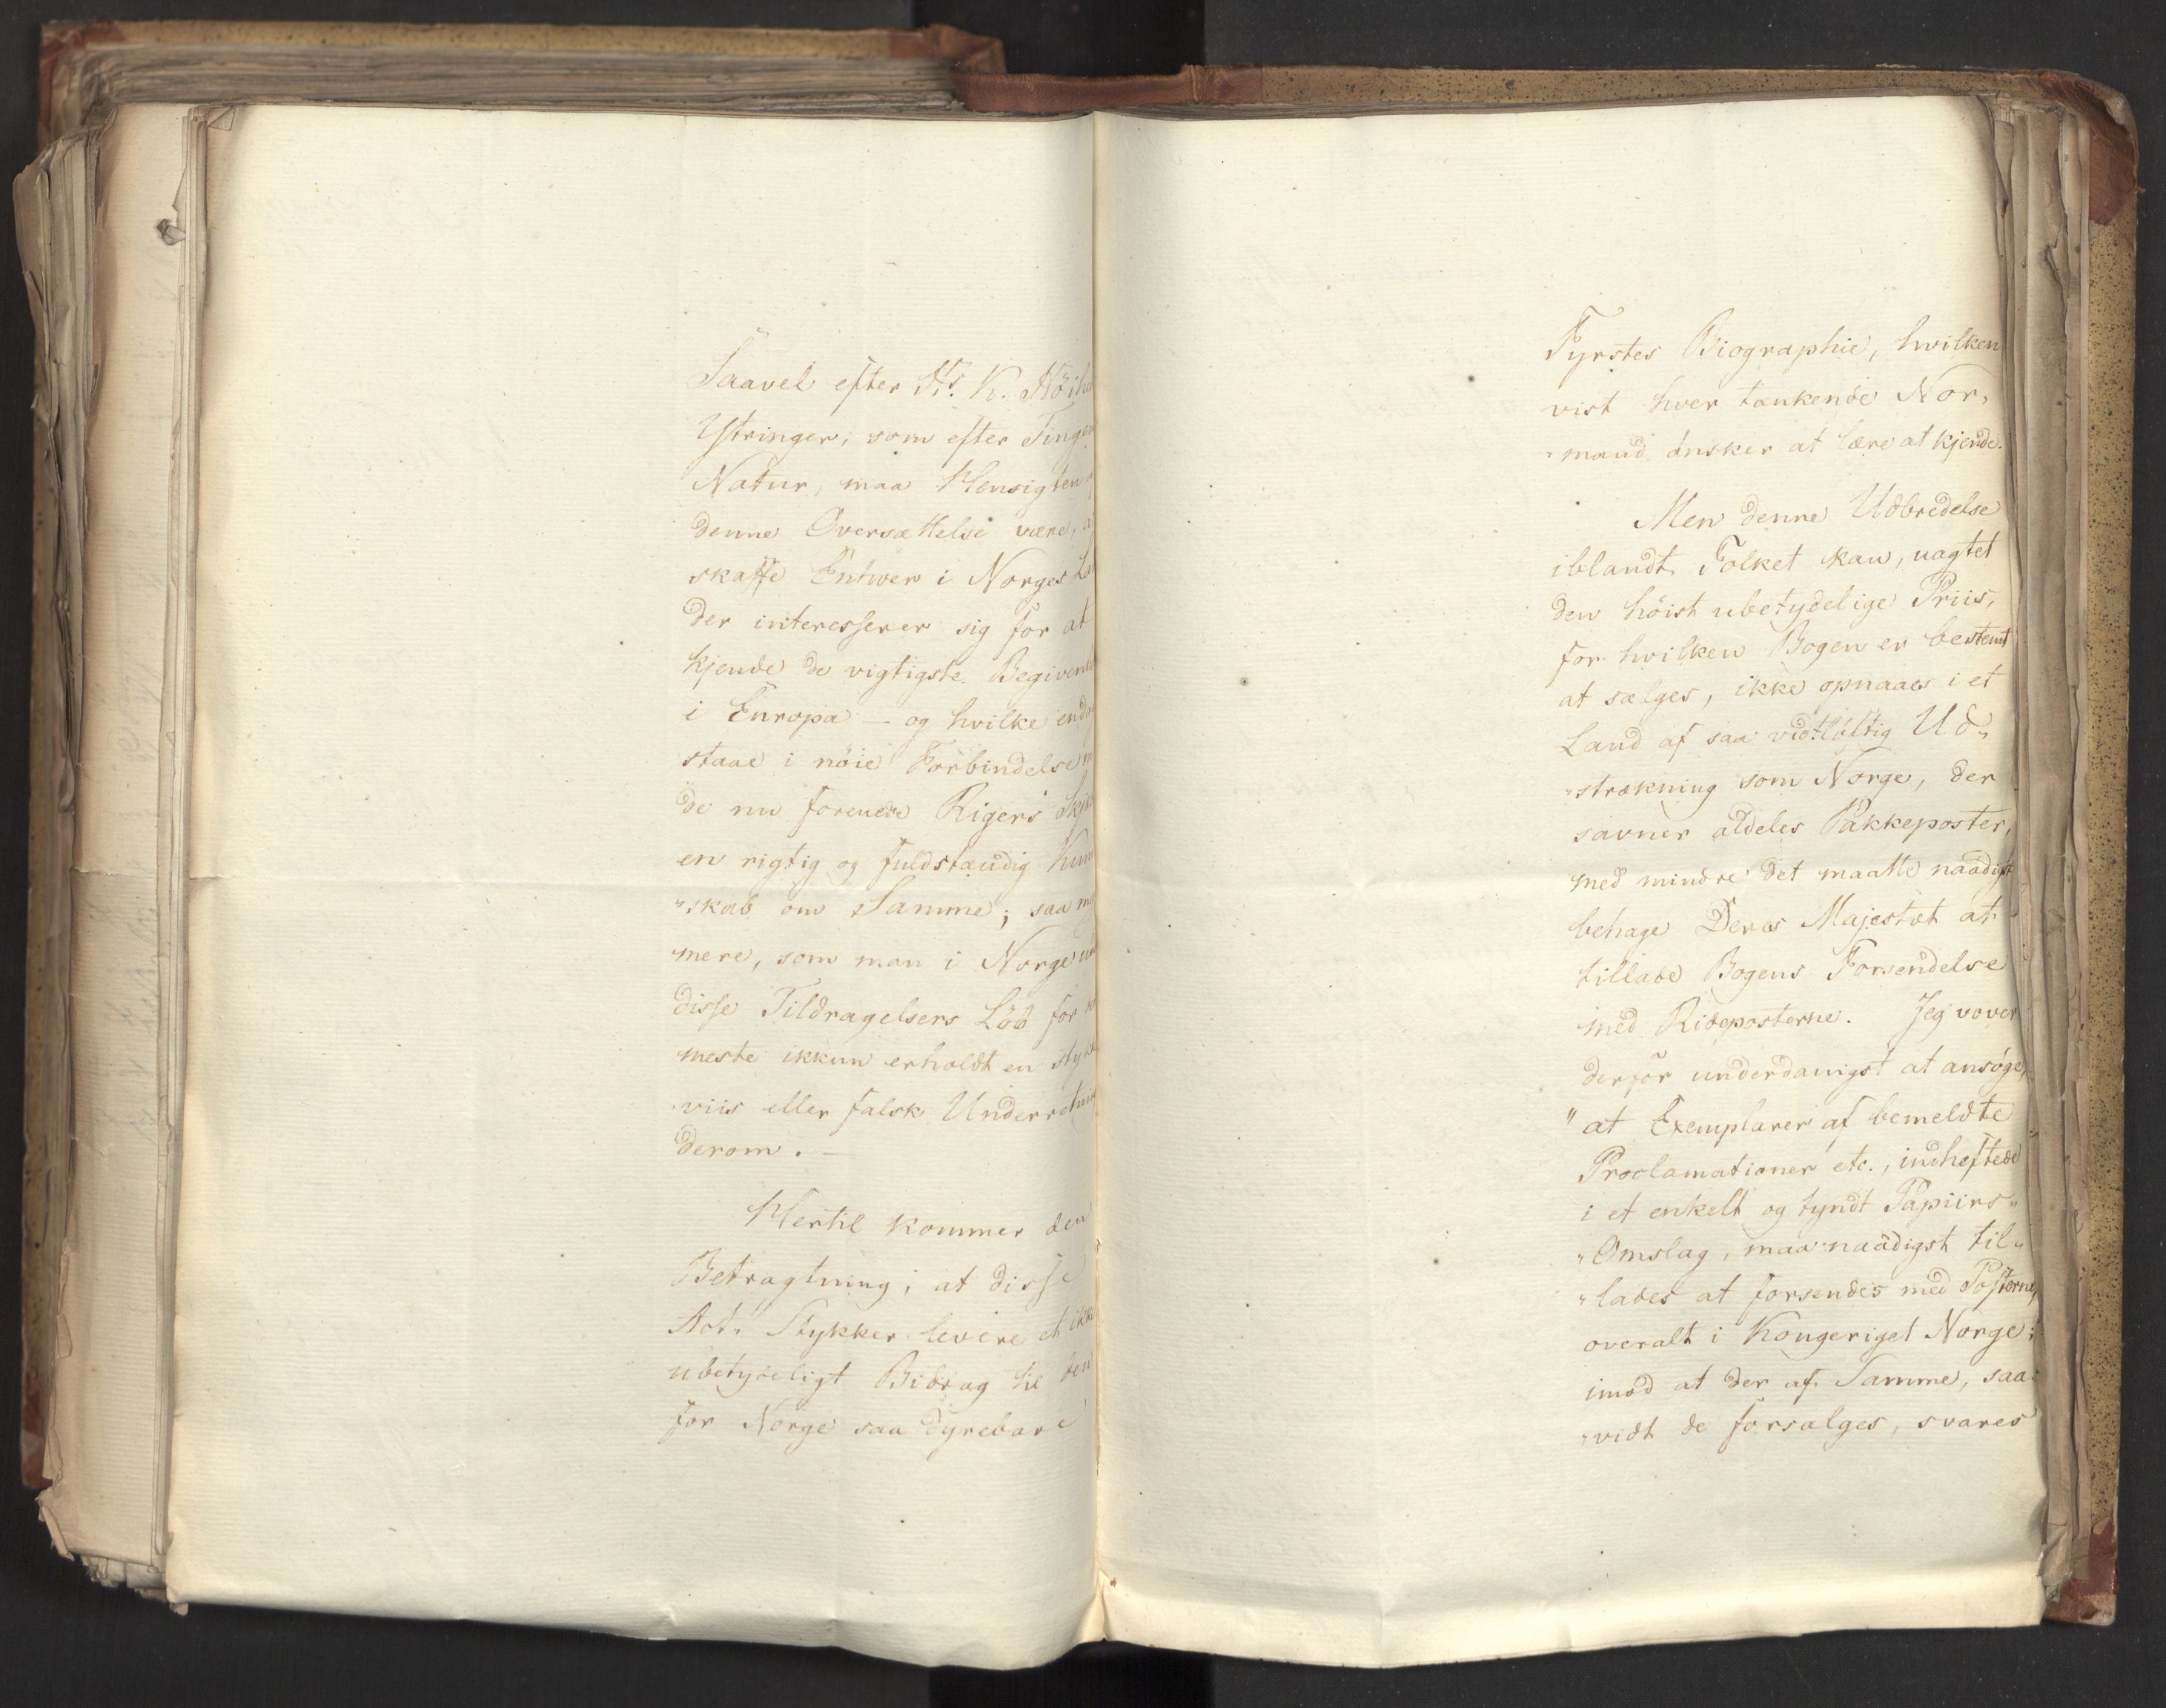 Saavel efter Hs. K. Höih
Ytringer, som efter Tinge
Natur, maa Hensigten
denne Oversættelse være, a
skaffe Enhver i Norges La
der interesserer sig for at
kjende de vigtigste Begiven
i Europa — og hvilke endog
staae i nöie Forbindelse m
de nu forenede Rigers Skj
en rigtig og fuldstændig Kun
"skab om Samme; saa m
mere, som man i Norge un
disse Tildragelsers Löb for
meste ikkun erholdt en styk
viis eller falsk Underretni
derom. —
Hertil kommer den
Betragtning, at disse
Act. Stykker levere et ikke
ubetydeligt Bidrag til den
for Norge saa dyrebare
Fyrstes Biographie, hvilken
vist hver tænkende Nor"
"mand önsker at lære at kjende.
Men denne Udbredelse
iblandt Folket kan, uagtet
den höist ubetydelige Priis,
for hvilken Bogen er bestemt
at sælges, ikke opnaaes i et
Land af saa vidtlöftig Ud"
"strækning som Norge, der
savner aldeles Pakkeposter,
med mindre det maatte naadigst
behage Deres Majestæt at
tillade Bogens Forsendelse
med Rideposterne. Jeg vover
derfor underdanigst at ansöge,
" at Exemplarer af bemeldte
Proclamationer etc., indheftede
i et enkelt og tyndt Papiirs"
"Omslag, maa naadigst til"
"lades at forsendes med Posterne,
overalt i Kongeriget Norge;
imod at der af Samme, saa"
"vidt de forsælges, svares